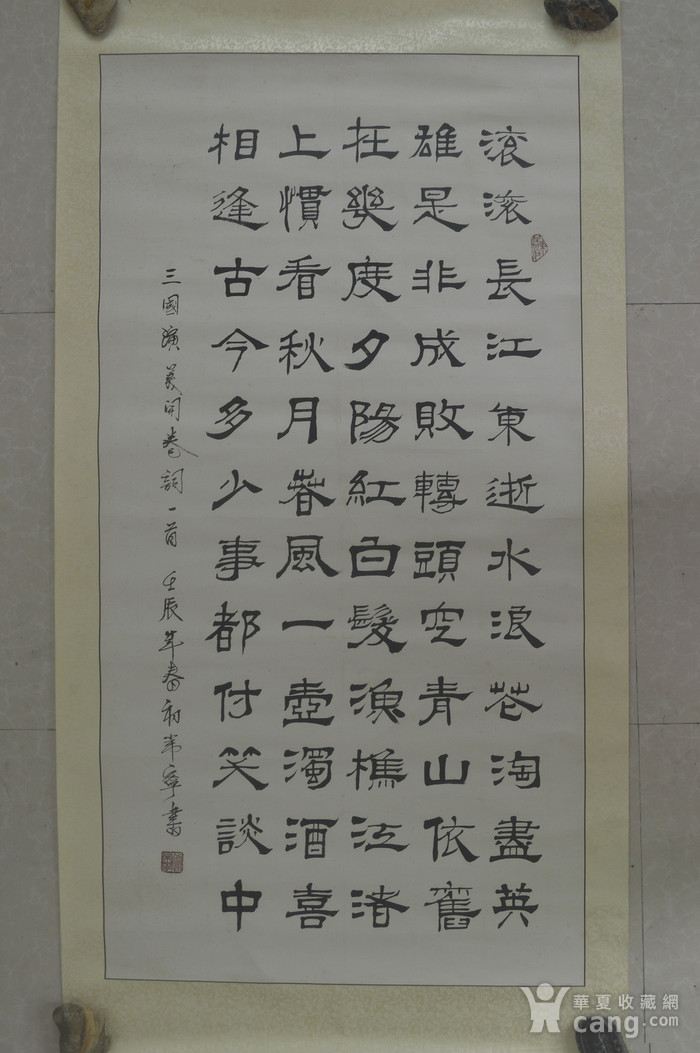 滚滚長江東逝水浪花淘盡英
雄是非成敗轉頭空青山依舊
在幾度夕陽紅白髮漁樵江渚
上慣看秋月春風一壺濁酒喜
相逢古今多少事都付笑談中
三國演義開卷詞一首 壬辰年春初寧書
華夏收藏網
cang.com